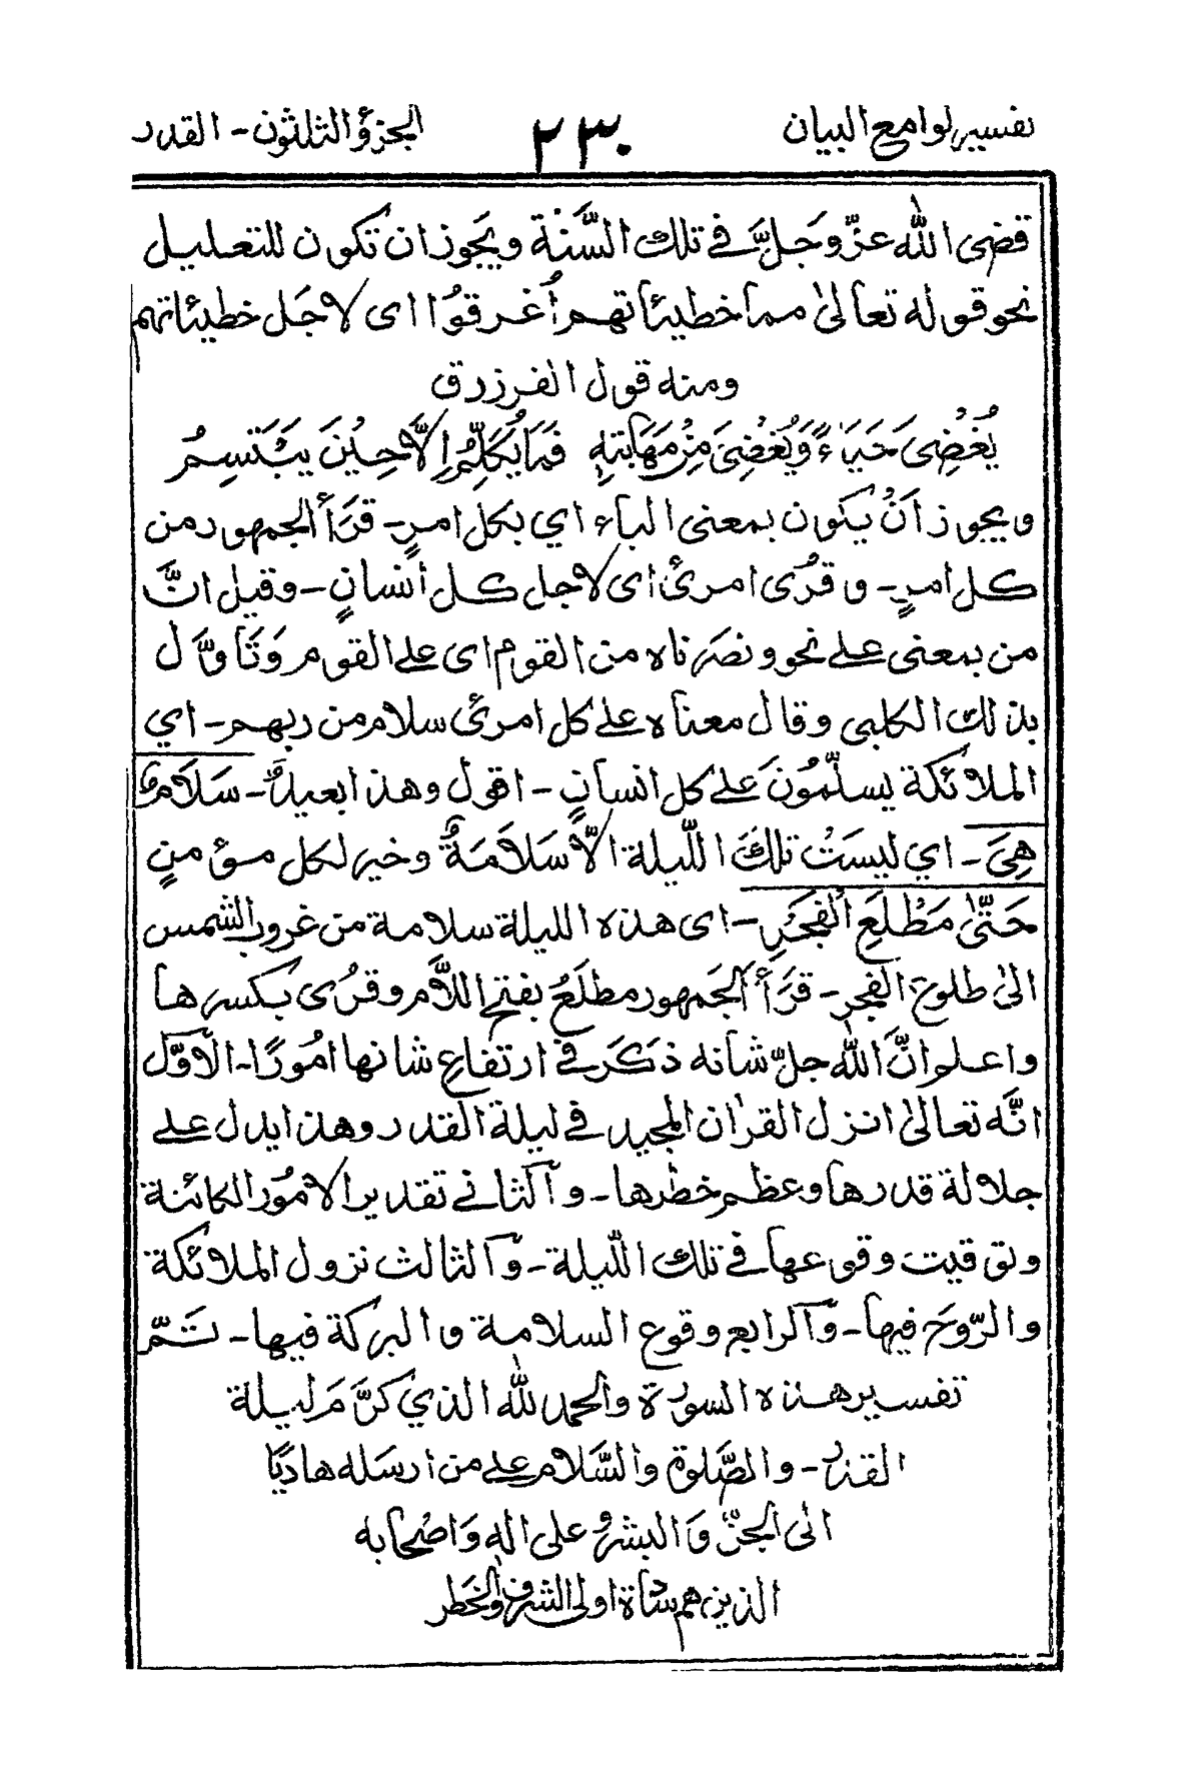 تفسير لوامع البيان ٢٣٠ الجزؤ الثلثون - القدر
قضى الله عزّ وجلّ في تلك السَّنة ويَجوز ان تكون للتعليل
نحو قوله تعالىٰ مما خطيئاتهم أُغرقوُا اى لاجَل خطيئاتهم
ومنه قول الفرزدق
يُغْضِىَ حَيَاءً وَيُغْضِىَ مِنْ مَهَابَتِهِ فَمَا يُكَلِّمُ إِلَّا حِيْنَ يَبْتَسِمُ
ويجوز أَنْ يكون بمعنى الباء اي بكل امرٍ - قَرَأَ الجمهور من
كل امرٍ - و قرُى امرئ اى لاجل كل أنسانٍ - وقيل انَّ
من بمعنى على نحو ونصَرناه من القوم اى على القوم وَتَأوَّل
بذلك الكلبى وقال معناه على كل امرئ سلام من ربهم - اي
الملائكة يسلّمُونَ على كل انسانٍ - اقول وهذا بعيدٌ - سَلَامٌ
هِىَ - اي ليسَتْ تلكَ اللّيلة الّا سَلَامَةٌ وخير لكل مؤمنٍ
حَتّىٰ مَطْلَعِ الْفَجْرِ - اى هذه الليلة سلامة من غروب الشمس
الىٰ طلوع الفجر - قَرَأَ الجَمهور مطلَعُ بفتح اللاَّم وقرُى بكسرها
واعلموانَّ الله جلّ شانه ذَكَرَ في ارتفاع شانها امُورًا - الآوّل
انَّه تعالىٰ انزل القراٰن المجيد في ليلة القدر وهذا يدل على
جلالة قدرها وعظم خطرها - وآلثاني تقدير الامُور الكائنة
وتوقيت وقوعها في تلك اللّيلة - وَآلثالث نزول الملائكة
والرّوحَ فيها - وَآلرابع وقوع السلامة والبركة فيها - تَمّ
تفسير هذه السورُة والحمد لله الذي كَرَّمَ ليلة
القدر - والصَّلوة والسَّلام على من ارسَله هاديًا
الى الجنّ وَالبشر وعلى اٰله وَاصْحابه
الذين هم سَادَة اولى الشرف والخَطر